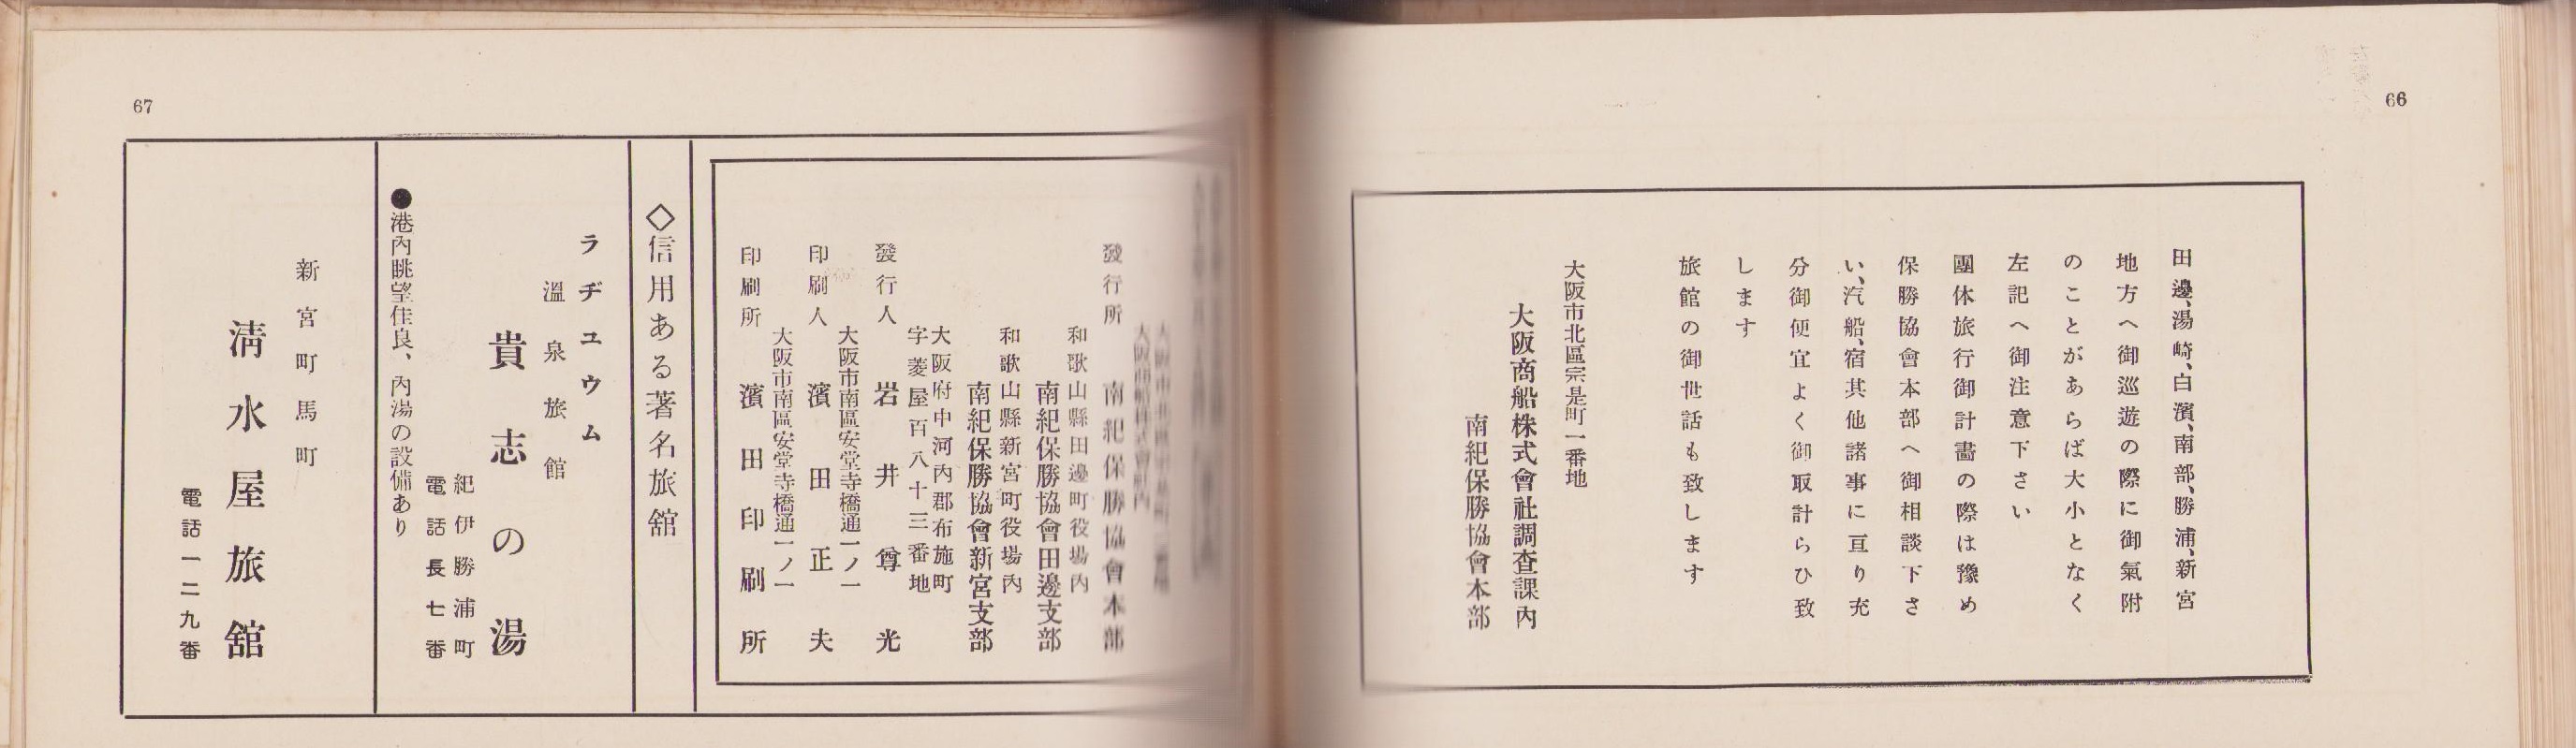 66
田邊、湯崎、白濱、南部、勝浦、新宮
地方へ御巡遊の際に御氣附
のことがあらば大小となく
左記へ御注意下さい
團体旅行御計畵の際は豫め
保勝協會本部へ御相談下さ
い、汽船、宿其他諸事に亘り充
分御便宜よく御取計らひ致
します
旅館の御世話も致します
大阪市北區宗是町一番地
大阪商船株式會社調査課內
南紀保勝協會本部
67
發行所
南紀保勝協會本部
和歌山縣田邊町役場內
南紀保勝協會田邊支部
和歌山縣新宮町役場內
南紀保勝協會新宮支部
大阪府中河內郡布施町
字菱屋百八十三番地
發行人 岩井尊光
大阪市南區安堂寺橋通一ノ一
印刷人 濱田正夫
大阪市南區安堂寺橋通一ノ一
印刷所 濱田印刷所
◇信用ある著名旅舘
ラヂユウム
溫泉旅館
貴志の湯
紀伊勝浦町
電話長七番
●港內眺望佳良、內湯の設備あり
新宮町馬町
淸水屋旅舘
電話一二九番